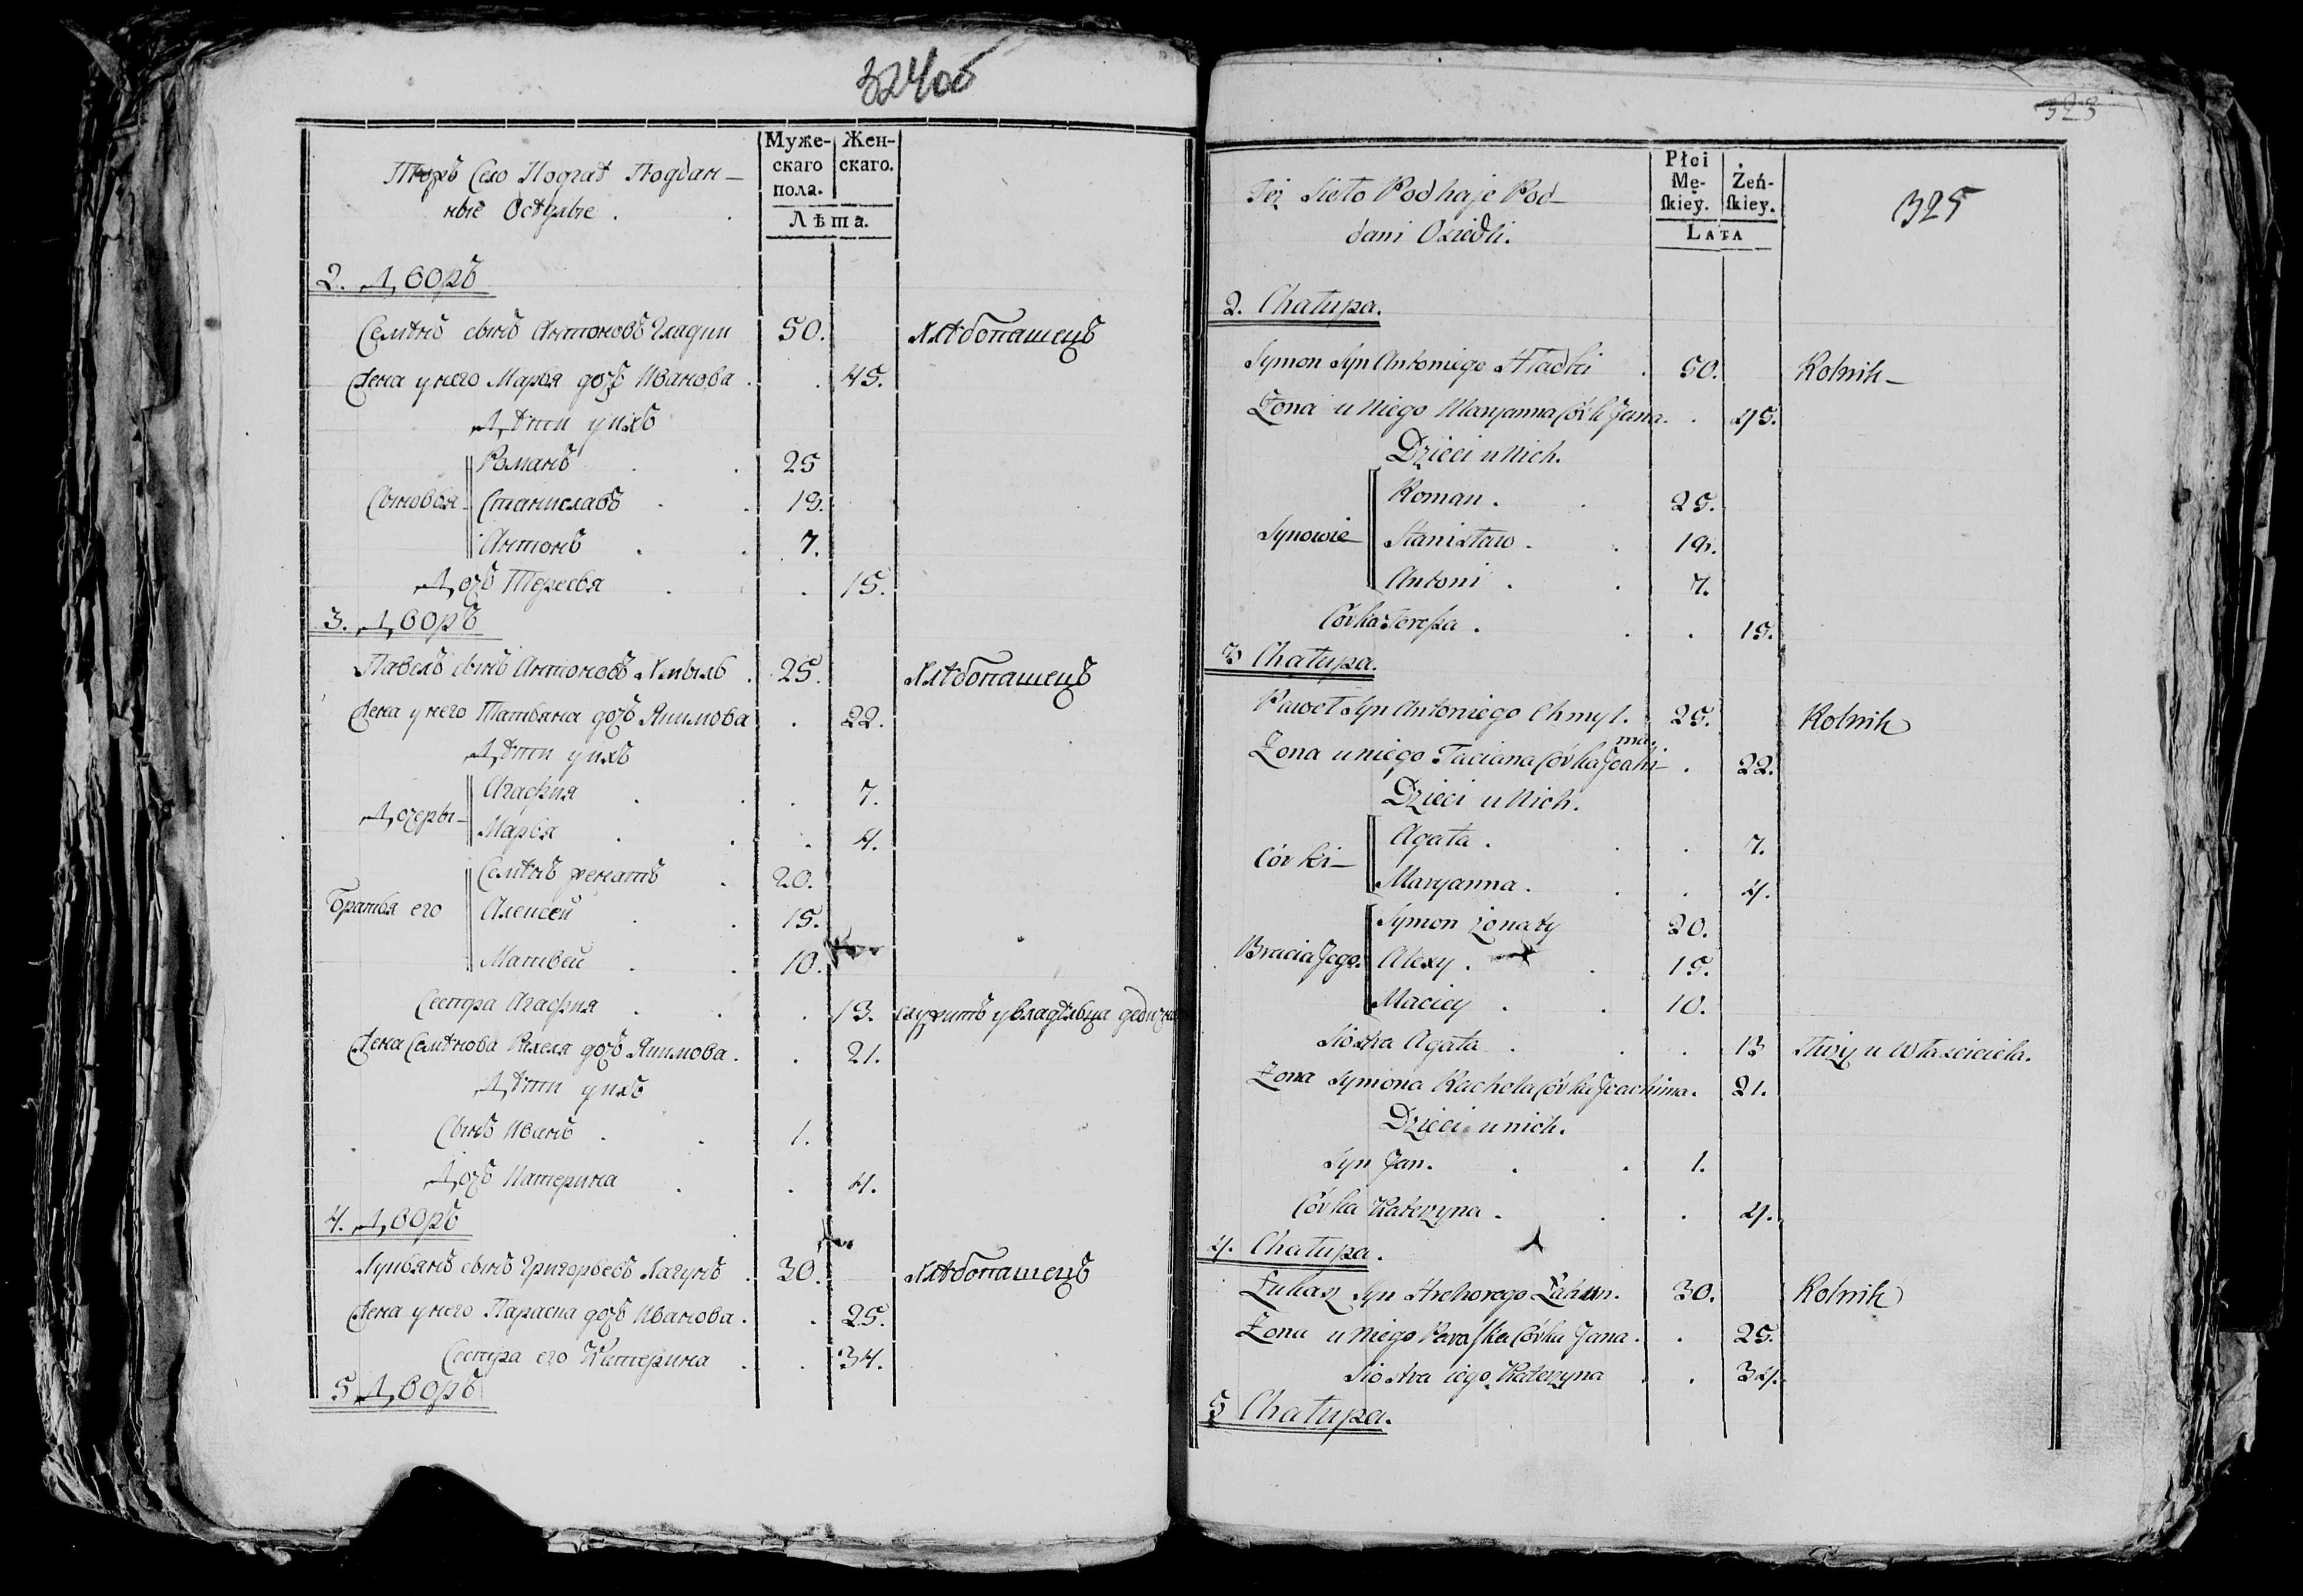 324об
Село Подгае Поддан-
ные Оседлые.
Муже-
скаго
пола.
Жен-
скаго.
Лѣта.
2. Дворъ
Семѣнъ сынъ Антоновъ Гладки 50. Хлѣбопашецъ
Жена у него Марья дочь Иванова . . 45.
Дѣти у ихъ
Романъ . . 25
Сыновья Станиславъ . . 19.
Антонъ . . 7.
Дочь Тересья . . 15.
3. Дворъ
Павелъ сынъ Антоновъ Хмыль . 25. Хлѣбопашецъ
Жена у него Татьяна дочь Якимова . 22.
Дѣти у ихъ
Агафия . . . 7.
Дочеры-
Марья . . . 4.
Семѣнъ женатъ . 20.
Братья его Алексей . . 15.
Матвей . . 10.
Сестра Агафия . . . 13. служитъ у владѣльца
Жена Семѣнова Рахеля дочь Якимова . . 21.
Дѣти у ихъ
Сынъ Иванъ . . 1.
Дочь Катерина . . 4.
4. Дворъ
Лукьянъ сынъ Григорьевъ Лагунъ . 30. Хлѣбопашецъ
Жена у него Параска дочь Иванова . . 25.
Сестра его Катерина . . 34.
5 Дворъ
323
325
Też Sieło Podhaje Pod-
dani Osiedli.
Płci
Mę-
ſkiey.
Żeń-
ſkiey.
LATA
2. Chałupa.
Symon Syn Antoniego Hładki . 50. Rolnik-
Żona u Niego Maryanna Córka Jana. . 45.
Dzieci u Nich.
Roman . . 25.
Synowie Stanisław . . 19.
Antoni . . 7.
Córka Tereſsa . . . 15.
3 Chałupa.
Paweł Syn Antoniego Chmyl. 25. Rolnik
Żona u niego Taciana Córka Joachi-ma. . 22.
Dzieci u Nich.
Agata . . . 7.
Córki-
Maryanna . . . 4.
Symon żonaty 20.
Bracia Jego. Alexy . . 15.
Maciey . . 10.
Siostra Agata . . . 13 Służy u Właściciela.
Żona Symona Rachela Córka Joachima. 21.
Dzieci u nich.
Syn Jan. . . 1.
Córka Katerzyna . . . 4.
4. Chałupa.
Łukasz Syn Hrehorego Łahun. 30. Rolnik
Żona u Niego Paraſka Córka Jana . . 25.
Siostra iego Katerzyna . . 34.
5 Chałupa.